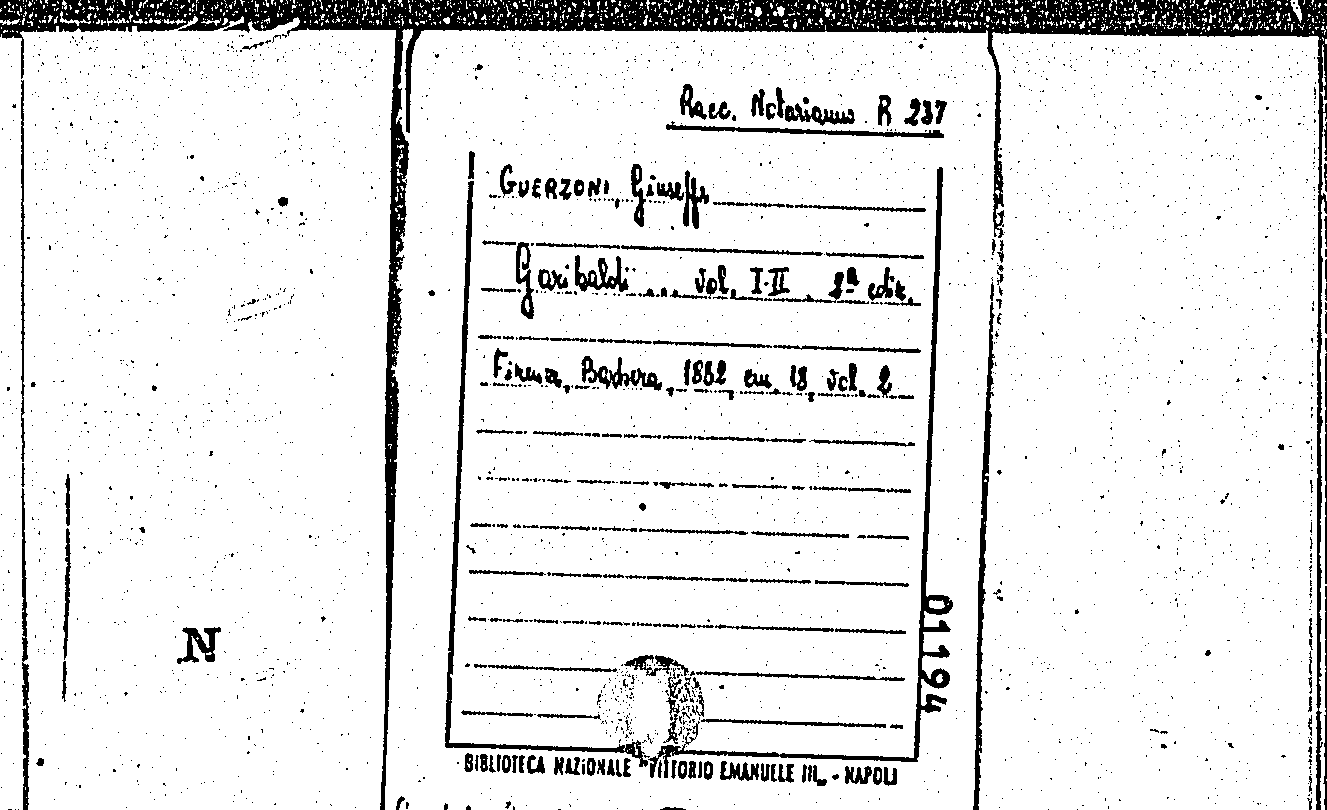 Racc. Notarianni R 237
GUERZONI, Giuseppe
Garibaldi ... vol. I-II . 2ª ediz.
Firenze, Barbera, 1882, cm. 18, vol. 2
01194
N
BIBLIOTECA NAZIONALE "VITTORIO EMANUELE III„ - NAPOLI